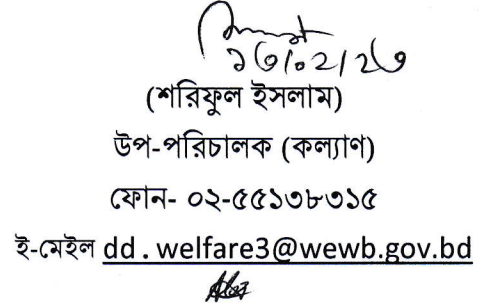 ১৩/০২/২৩
(শরিফুল ইসলাম)
উপ-পরিচালক (কল্যাণ)
ফোন- ০২-৫৫১৩৮৩১৫
ই-মেইল dd . welfare3@wewb.gov.bd